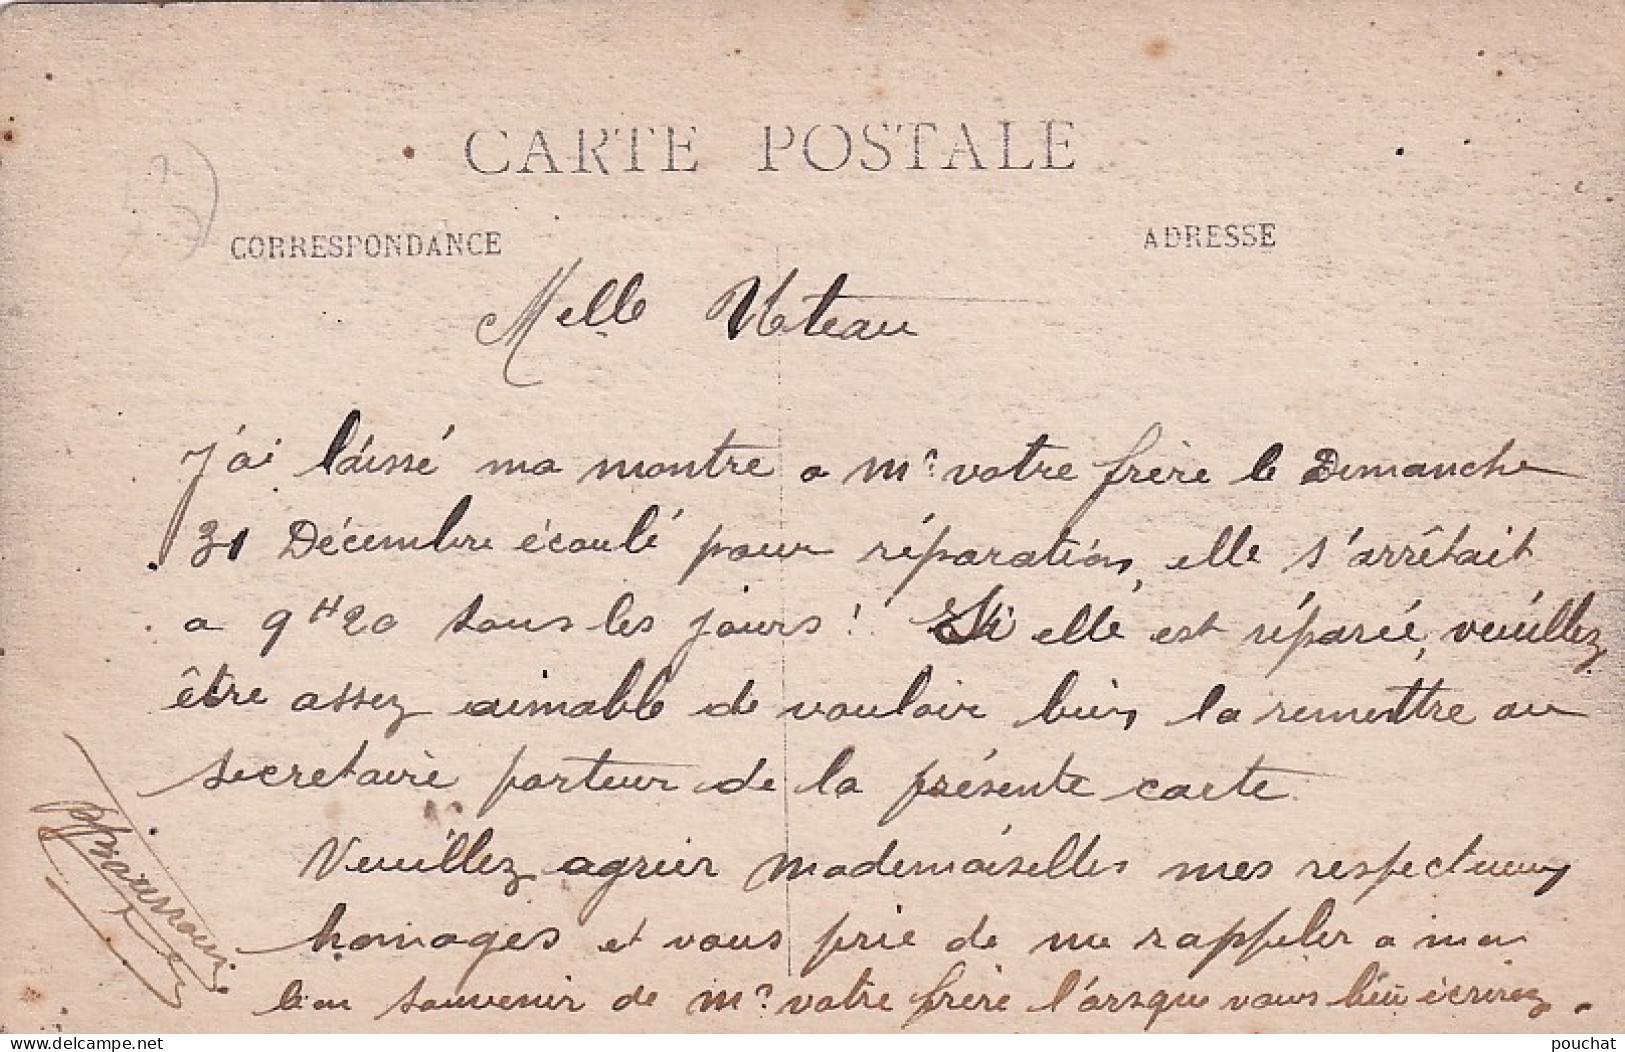 CARTE POSTALE
CORRESPONDANCE
ADRESSE
Melle
J'ai laissé ma montre a Mr votre frère le Dimanche
31 Décembre écoulé pour réparation, elle s'arrêtait
a 9H20 tous les jours! Si elle est réparée, veuillez
être assez aimable de vouloir bien la remettre au
secretaire porteur de la présente carte.
Veuillez agréer Mademoiselles mes respectueux
homages et vous prie de me rappeler a mon
bon souvenir de Mr votre frère l'orsque vous lui écrirez.
delcampe.net
pouchat